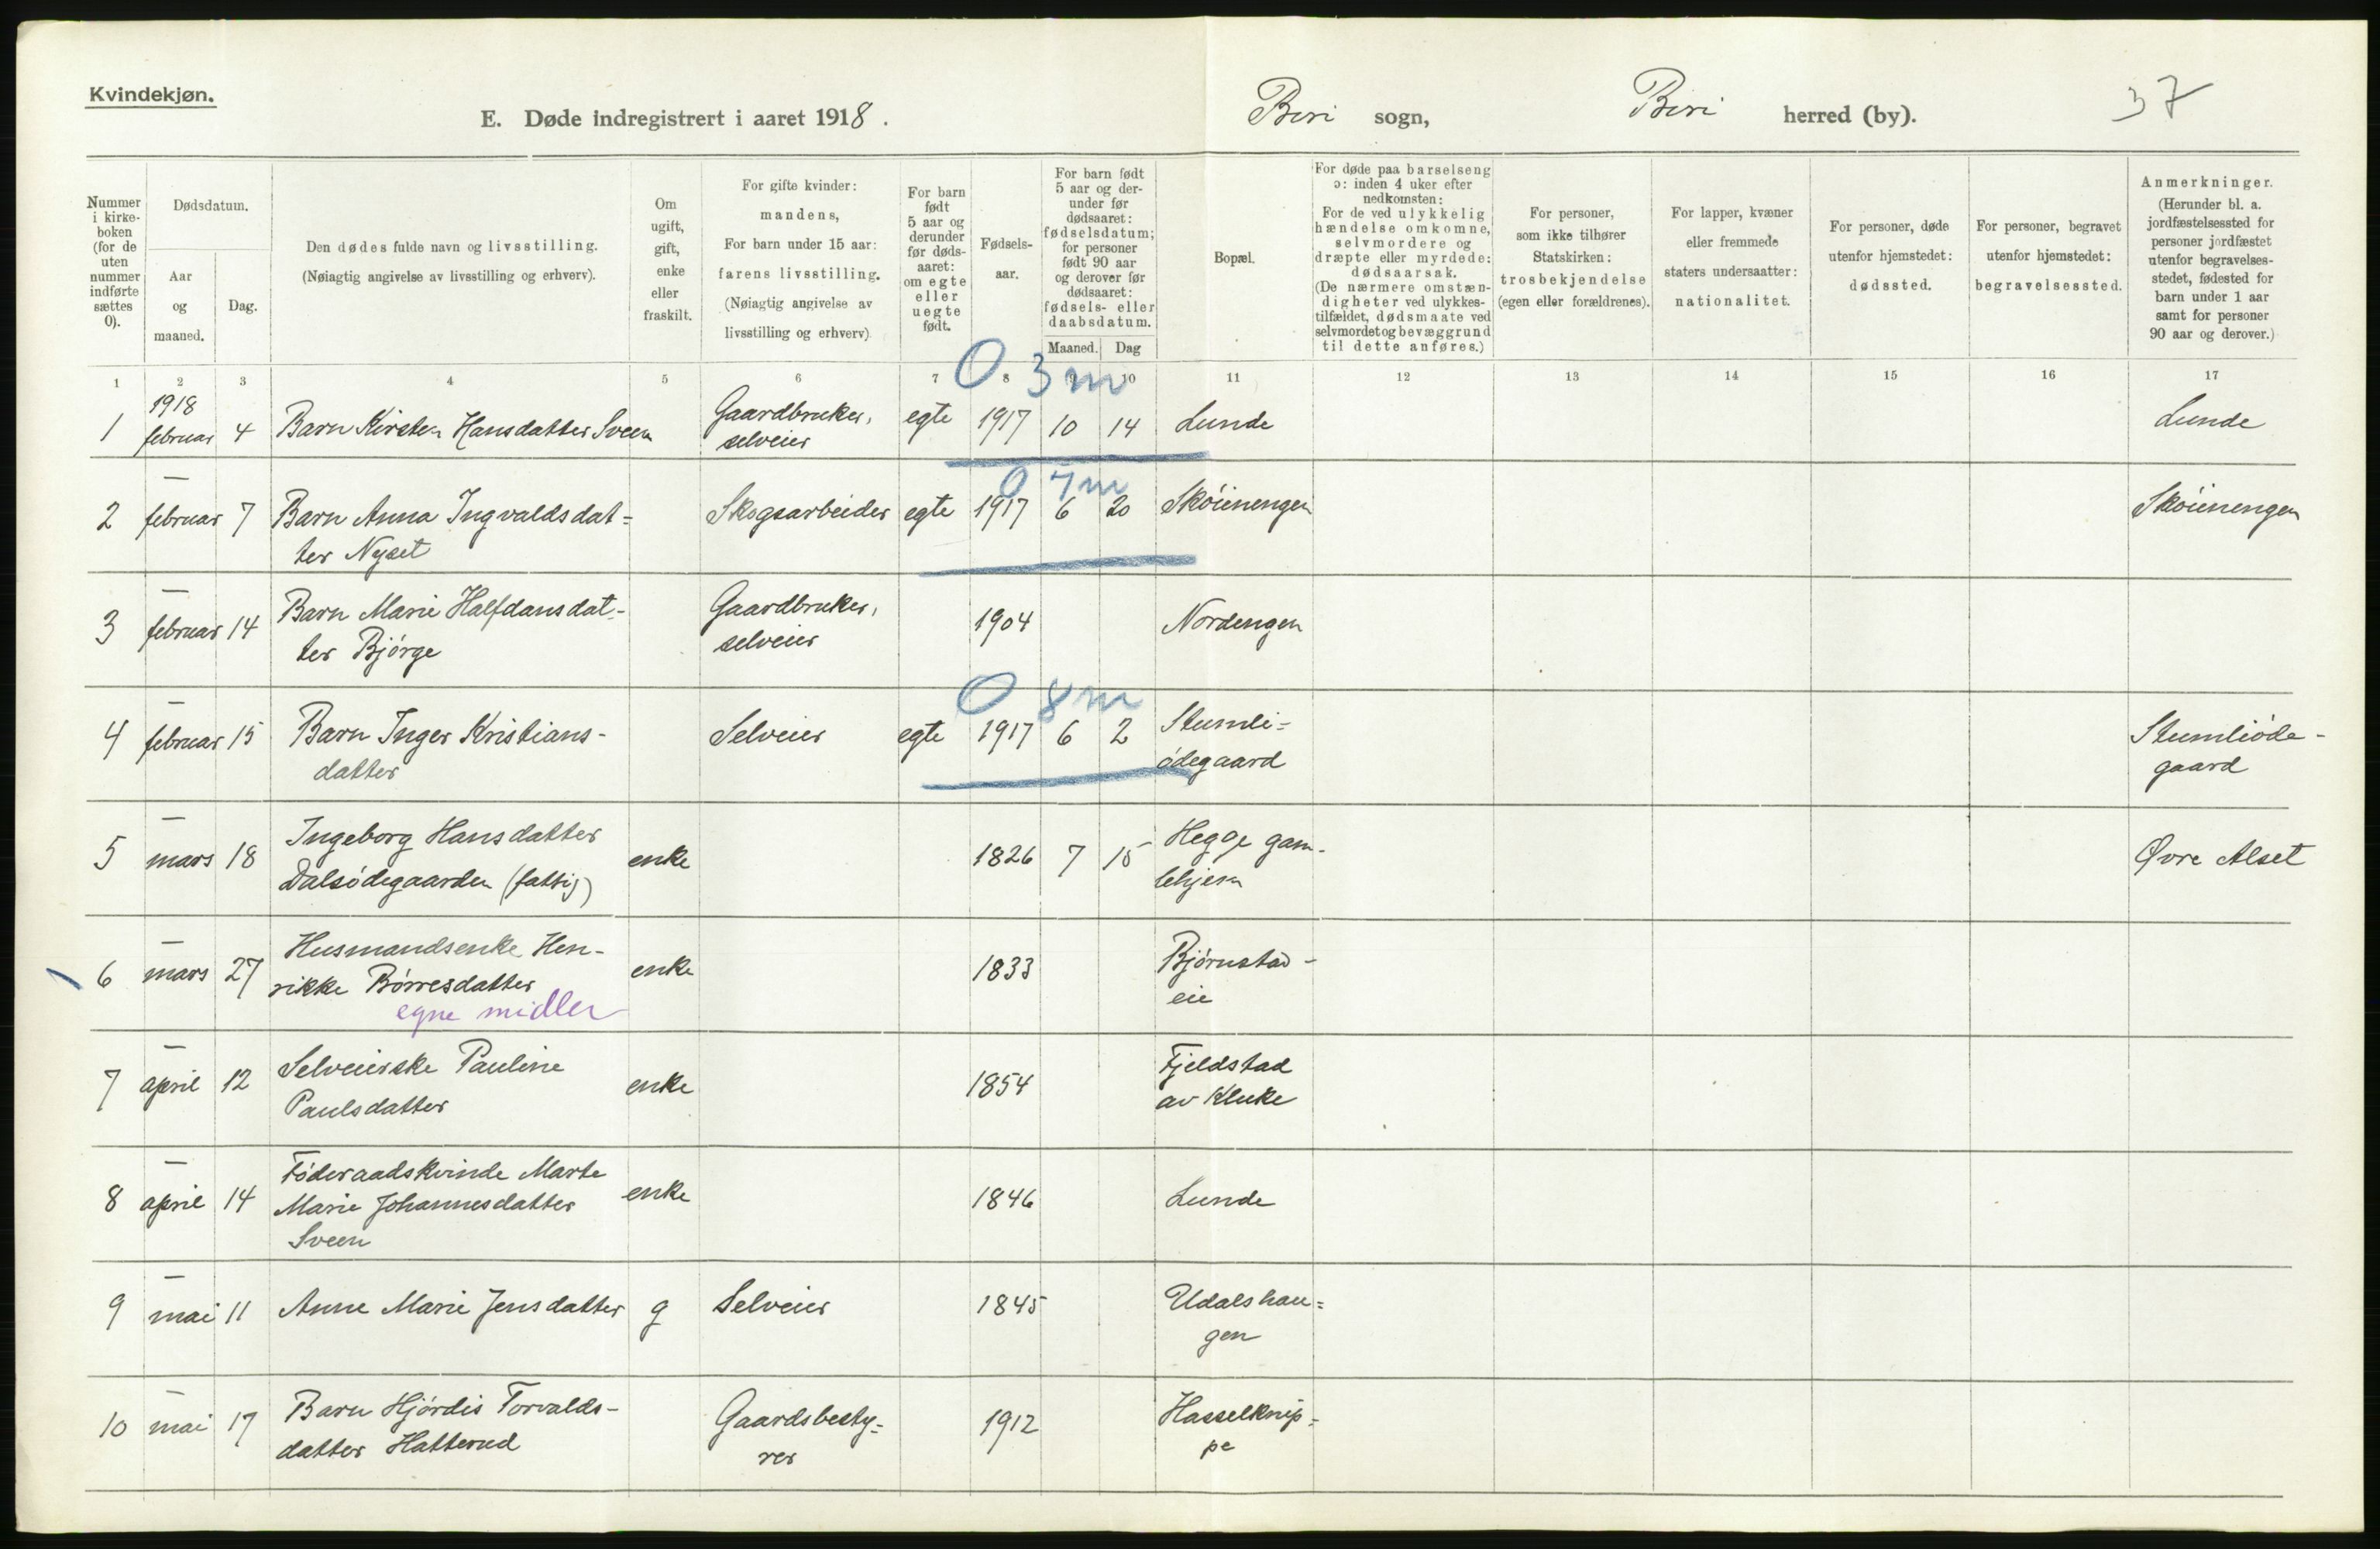 Kvindekjøn.
E. Døde indregistrert i aaret 1918.
Biri sogn,
Biri herred (by).
37
Nummer i kirke-boken (for de uten nummer indførte sættes 0).
Dødsdatum.
Aar og maaned.
Dag.
Den dødes fulde navn og livsstilling.
(Nøiagtig angivelse av livsstilling og erhverv).
Om ugift, gift, enke eller fraskilt.
For gifte kvinder: mandens,
For barn under 15 aar: farens livsstilling.
(Nøiagtig angivelse av livsstilling og erhverv)
For barn født 5 aar og derunder før døds-aaret: om egte eller uegte født.
Fødsels-aar.
For barn født 5 aar og der-under før dødsaaret: fødselsdatum; for personer født 90 aar og derover før dødsaaret: fødsels- eller daabsdatum.
Maaned. Dag
Bopæl.
For døde paa barselseng ɔ: inden 4 uker efter nedkomsten:
For de ved ulykkelig hændelse omkomne, selvmordere og dræpte eller myrdede: dødsaarsak.
(De nærmere omstæn-digheter ved ulykkes-tilfældet, dødsmaate ved selvmordet og bevæggrund til dette anføres.)
For personer, som ikke tilhører Statskirken: trosbekjendelse (egen eller forældrenes).
For lapper, kvæner eller fremmede staters undersaatter: nationalitet.
For personer, døde utenfor hjemstedet: dødssted.
For personer, begravet utenfor hjemstedet: begravelsessted.
Anmerkninger.
(Herunder bl. a. jordfæstelsessted for personer jordfæstet utenfor begravelses-stedet, fødested for barn under 1 aar samt for personer 90 aar og derover.)
1 2 3 4 5 6 7 8 9 10 11 12 13 14 15 16 17
0 3 m
1918
1 februar 4 Barn Kirsten Hansdatter Sveen Gaardbruker, egte 1917 10 14 Lunde Lunde
selveier
0 7 m
—
2 februar 7 Barn Anna Ingvaldsdat= Skogsarbeider egte 1917 6 20 Skøienengen Skøienengen
ter Nyset
—
3 februar 14 Barn Marie Halfdansdat- Gaardbruker, 1904 Nordengen
ter Bjørge selveier
0 8 m
—
4 februar 15 Barn Inger Kristians- Selveier egte 1917 6 2 Stumli= Stumliøde-
datter ødegaard gaard
—
5 mars 18 Ingeborg Hansdatter enke 1826 7 15 Hegge gam- Øvre Alset
Dalsødegaarden (fattig) lehjem
—
6 mars 27 Husmandsenke Hen- enke 1833 Bjørnstad-
rikke Børresdatter eie
egne midler
—
7 april 12 Selveierske Pauline enke 1854 Fjeldstad
Paulsdatter av Kluke
—
8 april 14 Føderaadskvinde Marte enke 1846 Lunde
Marie Johannesdatter
Sveen
—
9 mai 11 Anne Marie Jensdatter g Selveier 1845 Udalshau=
gen
—
10 mai 17 Barn Hjørdis Torvalds- Gaardsbesty= 1912 Hasselknip=
datter Hatterud rer pe